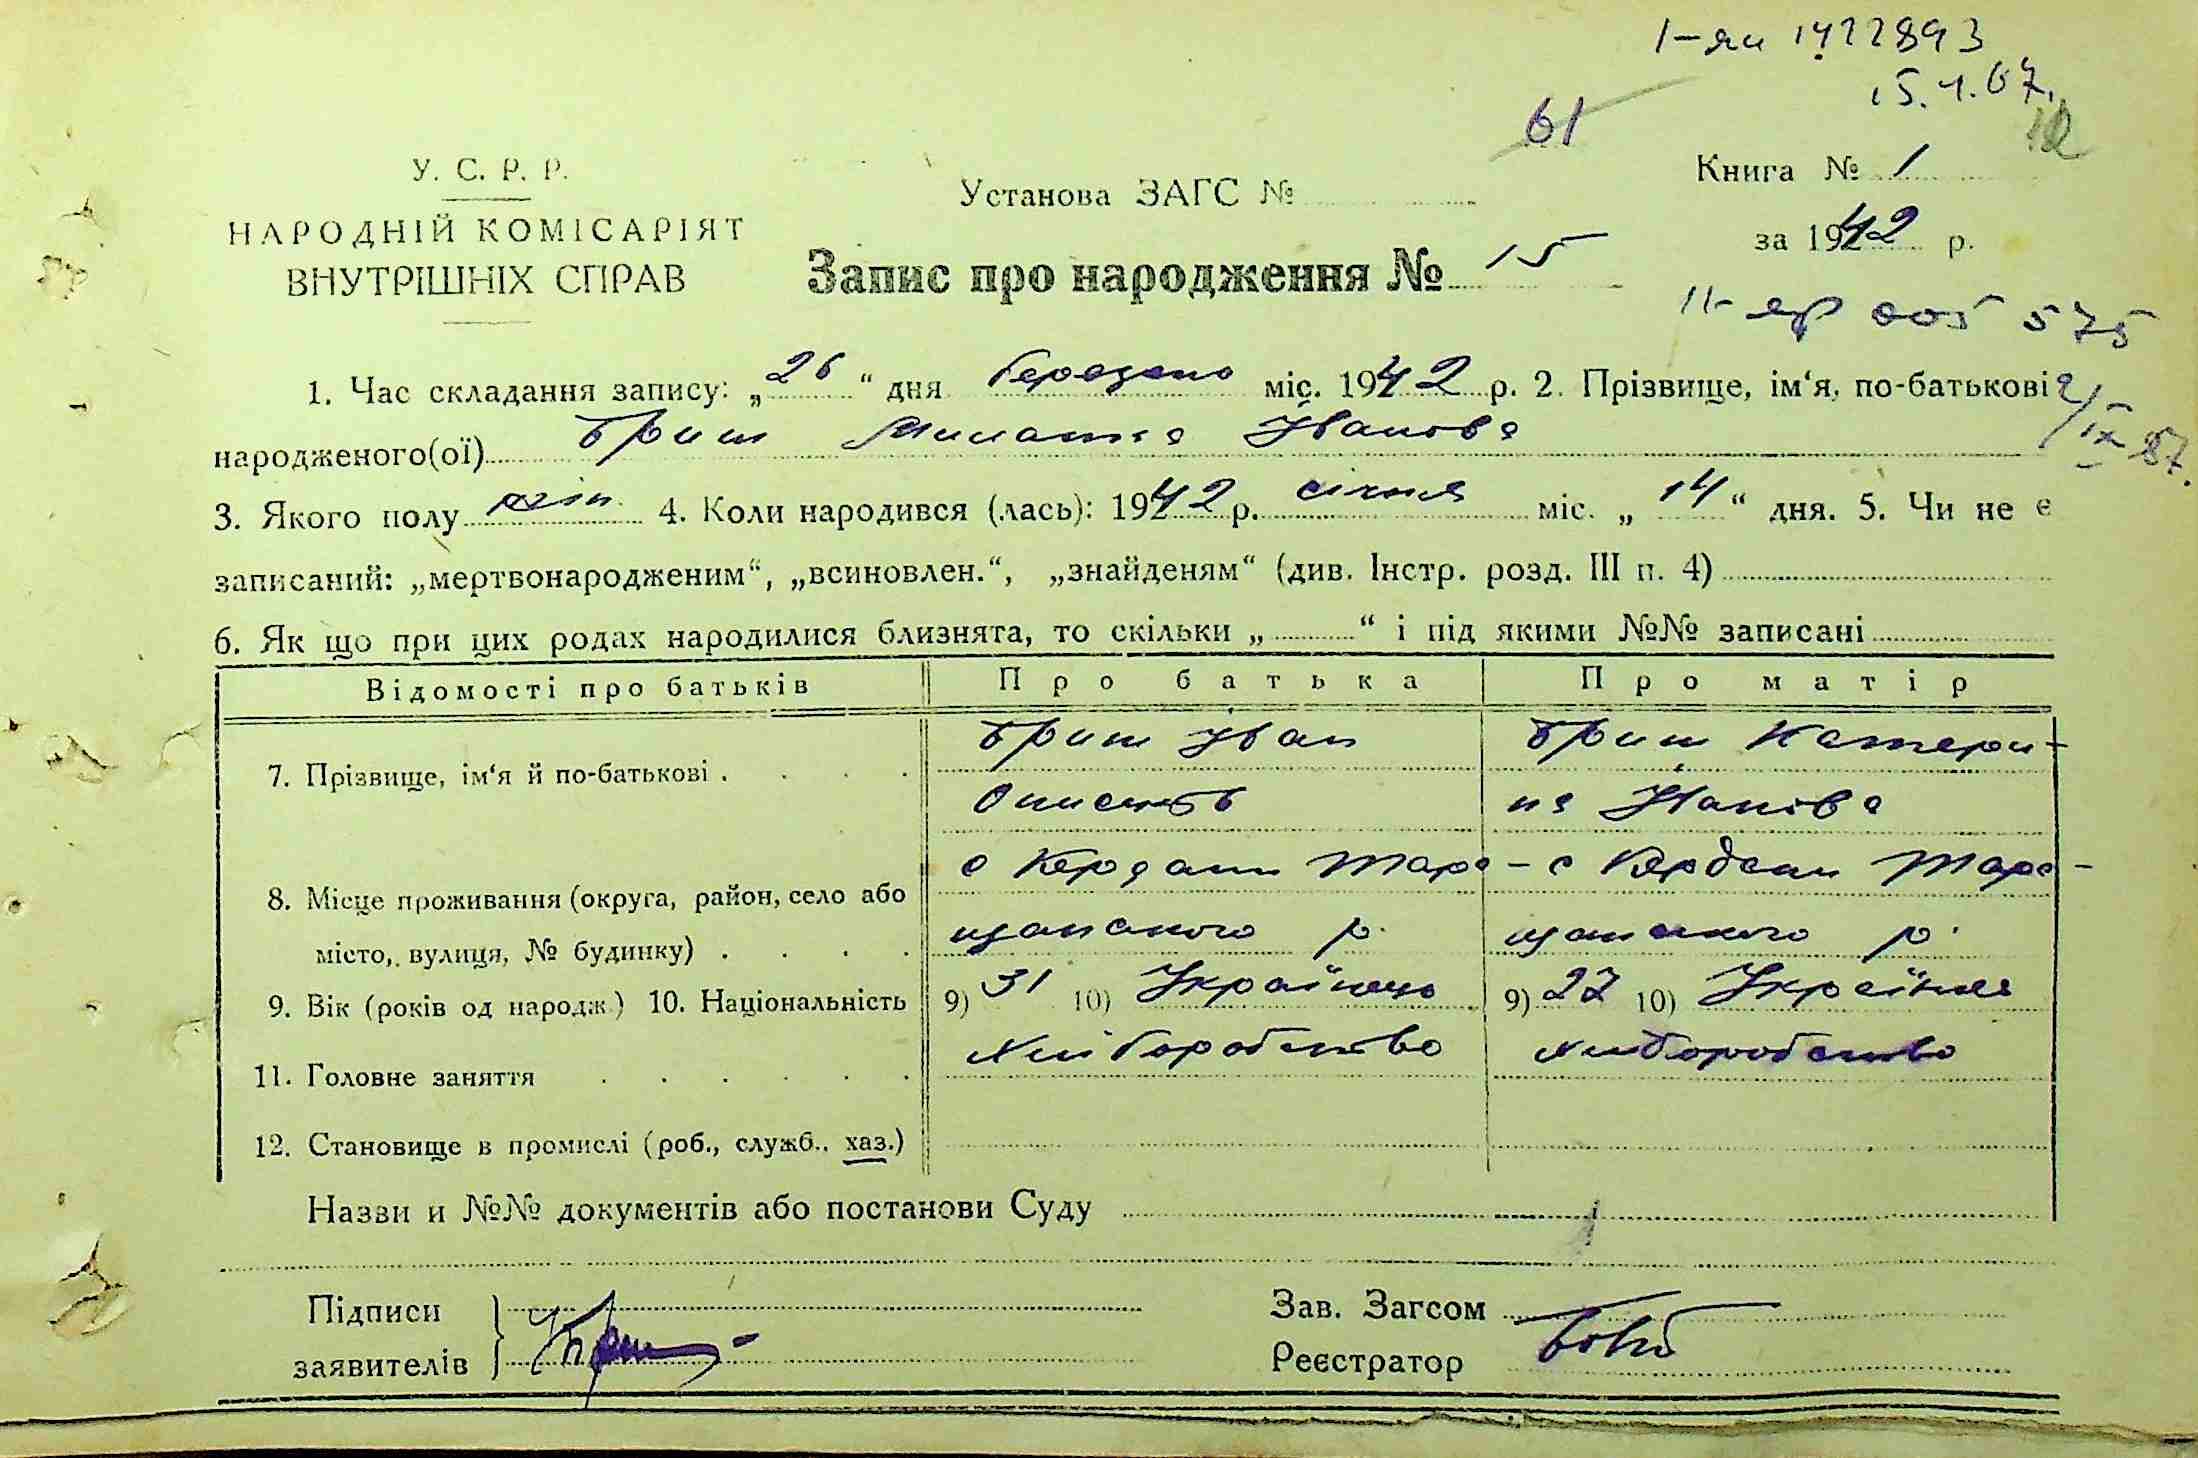 І-яи 1422893
15.1.67.
61
12
У. С. Р. Р.
НАРОДНІЙ КОМІСАРІЯТ
ВНУТРІШНІХ СПРАВ
Установа ЗАГС №
Книга № 1
за 1942 р.
Запис про народження № 15
ІІ-яр 005 575
1. Час складання запису: „26“ дня березень міс. 1942 р. 2. Прізвище, ім‘я, по-батькові
народженого(ої) Бриш Іванова
2/ІХ 87.
3. Якого полу жін 4. Коли народився (лась): 1942 р. січня міс. „14“ дня. 5. Чи не є
записаний: „мертвонародженим“, „всиновлен.“, „знайденям“ (див. Інстр. розд. III п. 4)
6. Як що при цих родах народилися близнята, то скільки „ “ і під якими №№ записані
Відомості про батьків Про батька Про матір
7. Прізвище, ім‘я й по-батькові . . . . Бриш Іван Бриш Катери-
на Іванова
8. Місце проживання (округа, район, село або с Кердани Тара- с Кердани Тара-
місто, вулиця, № будинку) . . . . щанского р. щанского р.
9. Вік (років од народж.) 10. Національність 9) 31 10) Українець 9) 27 10) Українка
11. Головне заняття . . . . . . Хліборобство хліборобство
12. Становище в промислі (роб., служб., хаз.)
Назви и №№ документів або постанови Суду
Підписи
заявителів
Зав. Загсом
Реєстратор